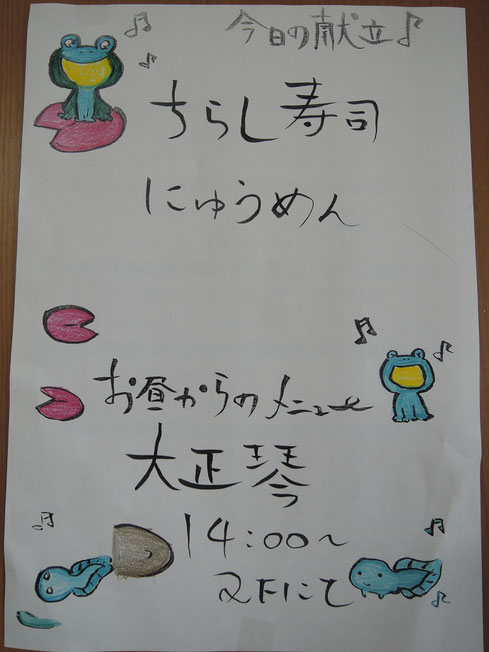 今日の献立♪
ちらし寿司
にゅうめん
お昼からのメニュー
大正琴
14:00〜
2Fにて